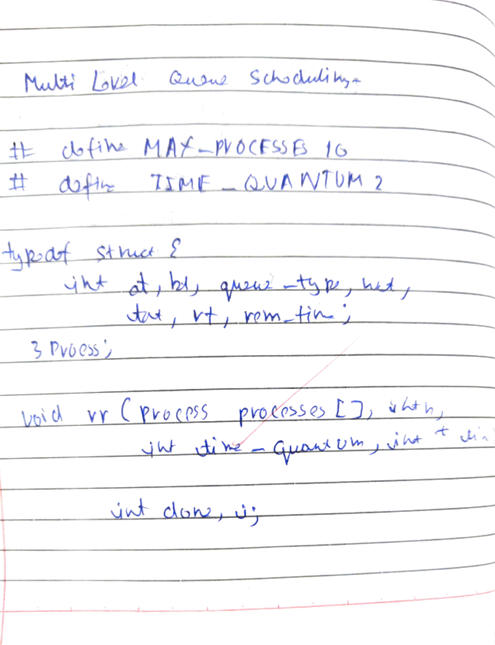 Multi Level Queue Scheduling-
# define MAX_PROCESSES 10
# define TIME_QUANTUM 2
typedef struct {
int at, bt, queue_type, wt,
tat, rt, rem_time;
} Process;
void rr (process processes [], int n,
int time_quantum, int *
int done, i;